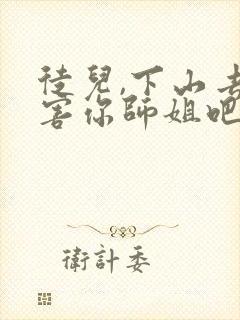 徒兒,下山去
害你師姐吧
衛計委